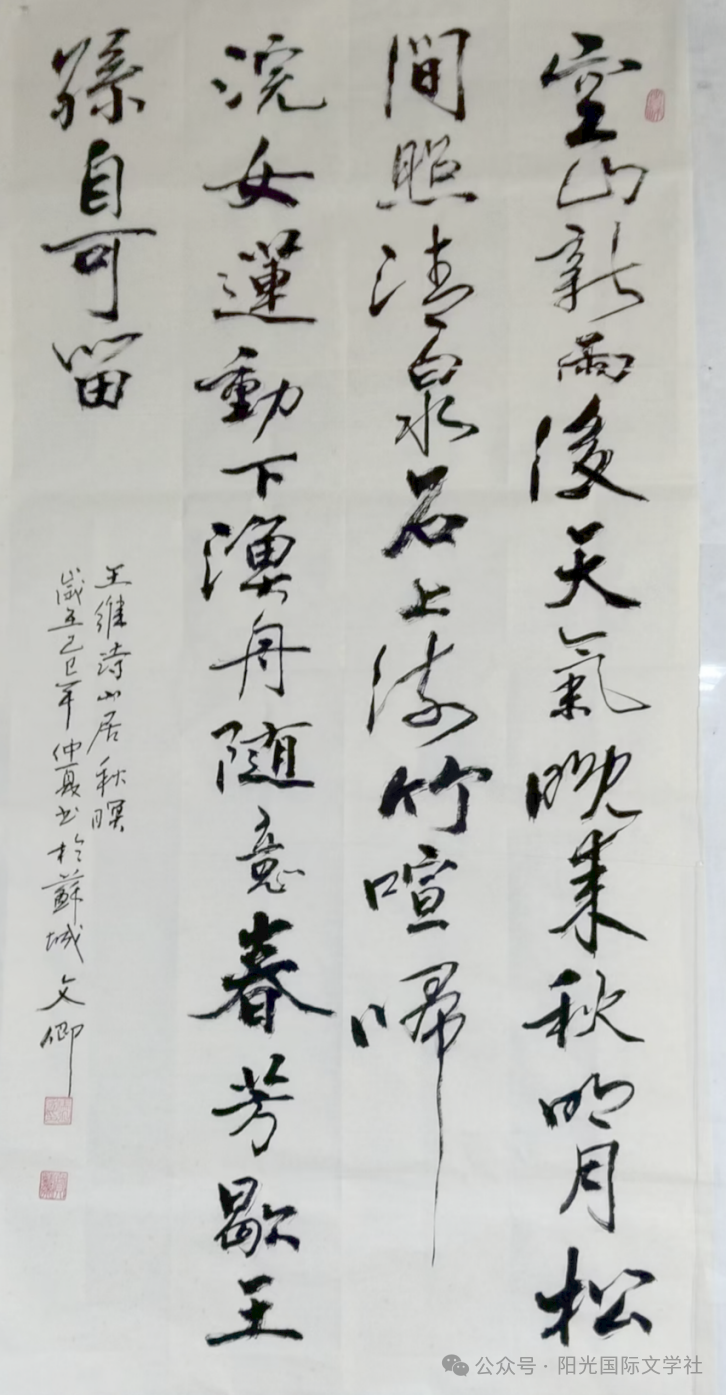 空山新雨後天氣晚来秋明月松
間照清泉石上流竹喧歸
浣女蓮動下漁舟随意春芳歇王
孫自可留
王維詩山居秋暝
歲在乙巳年仲夏书於蘇城文卿
公众号·阳光国际文学社